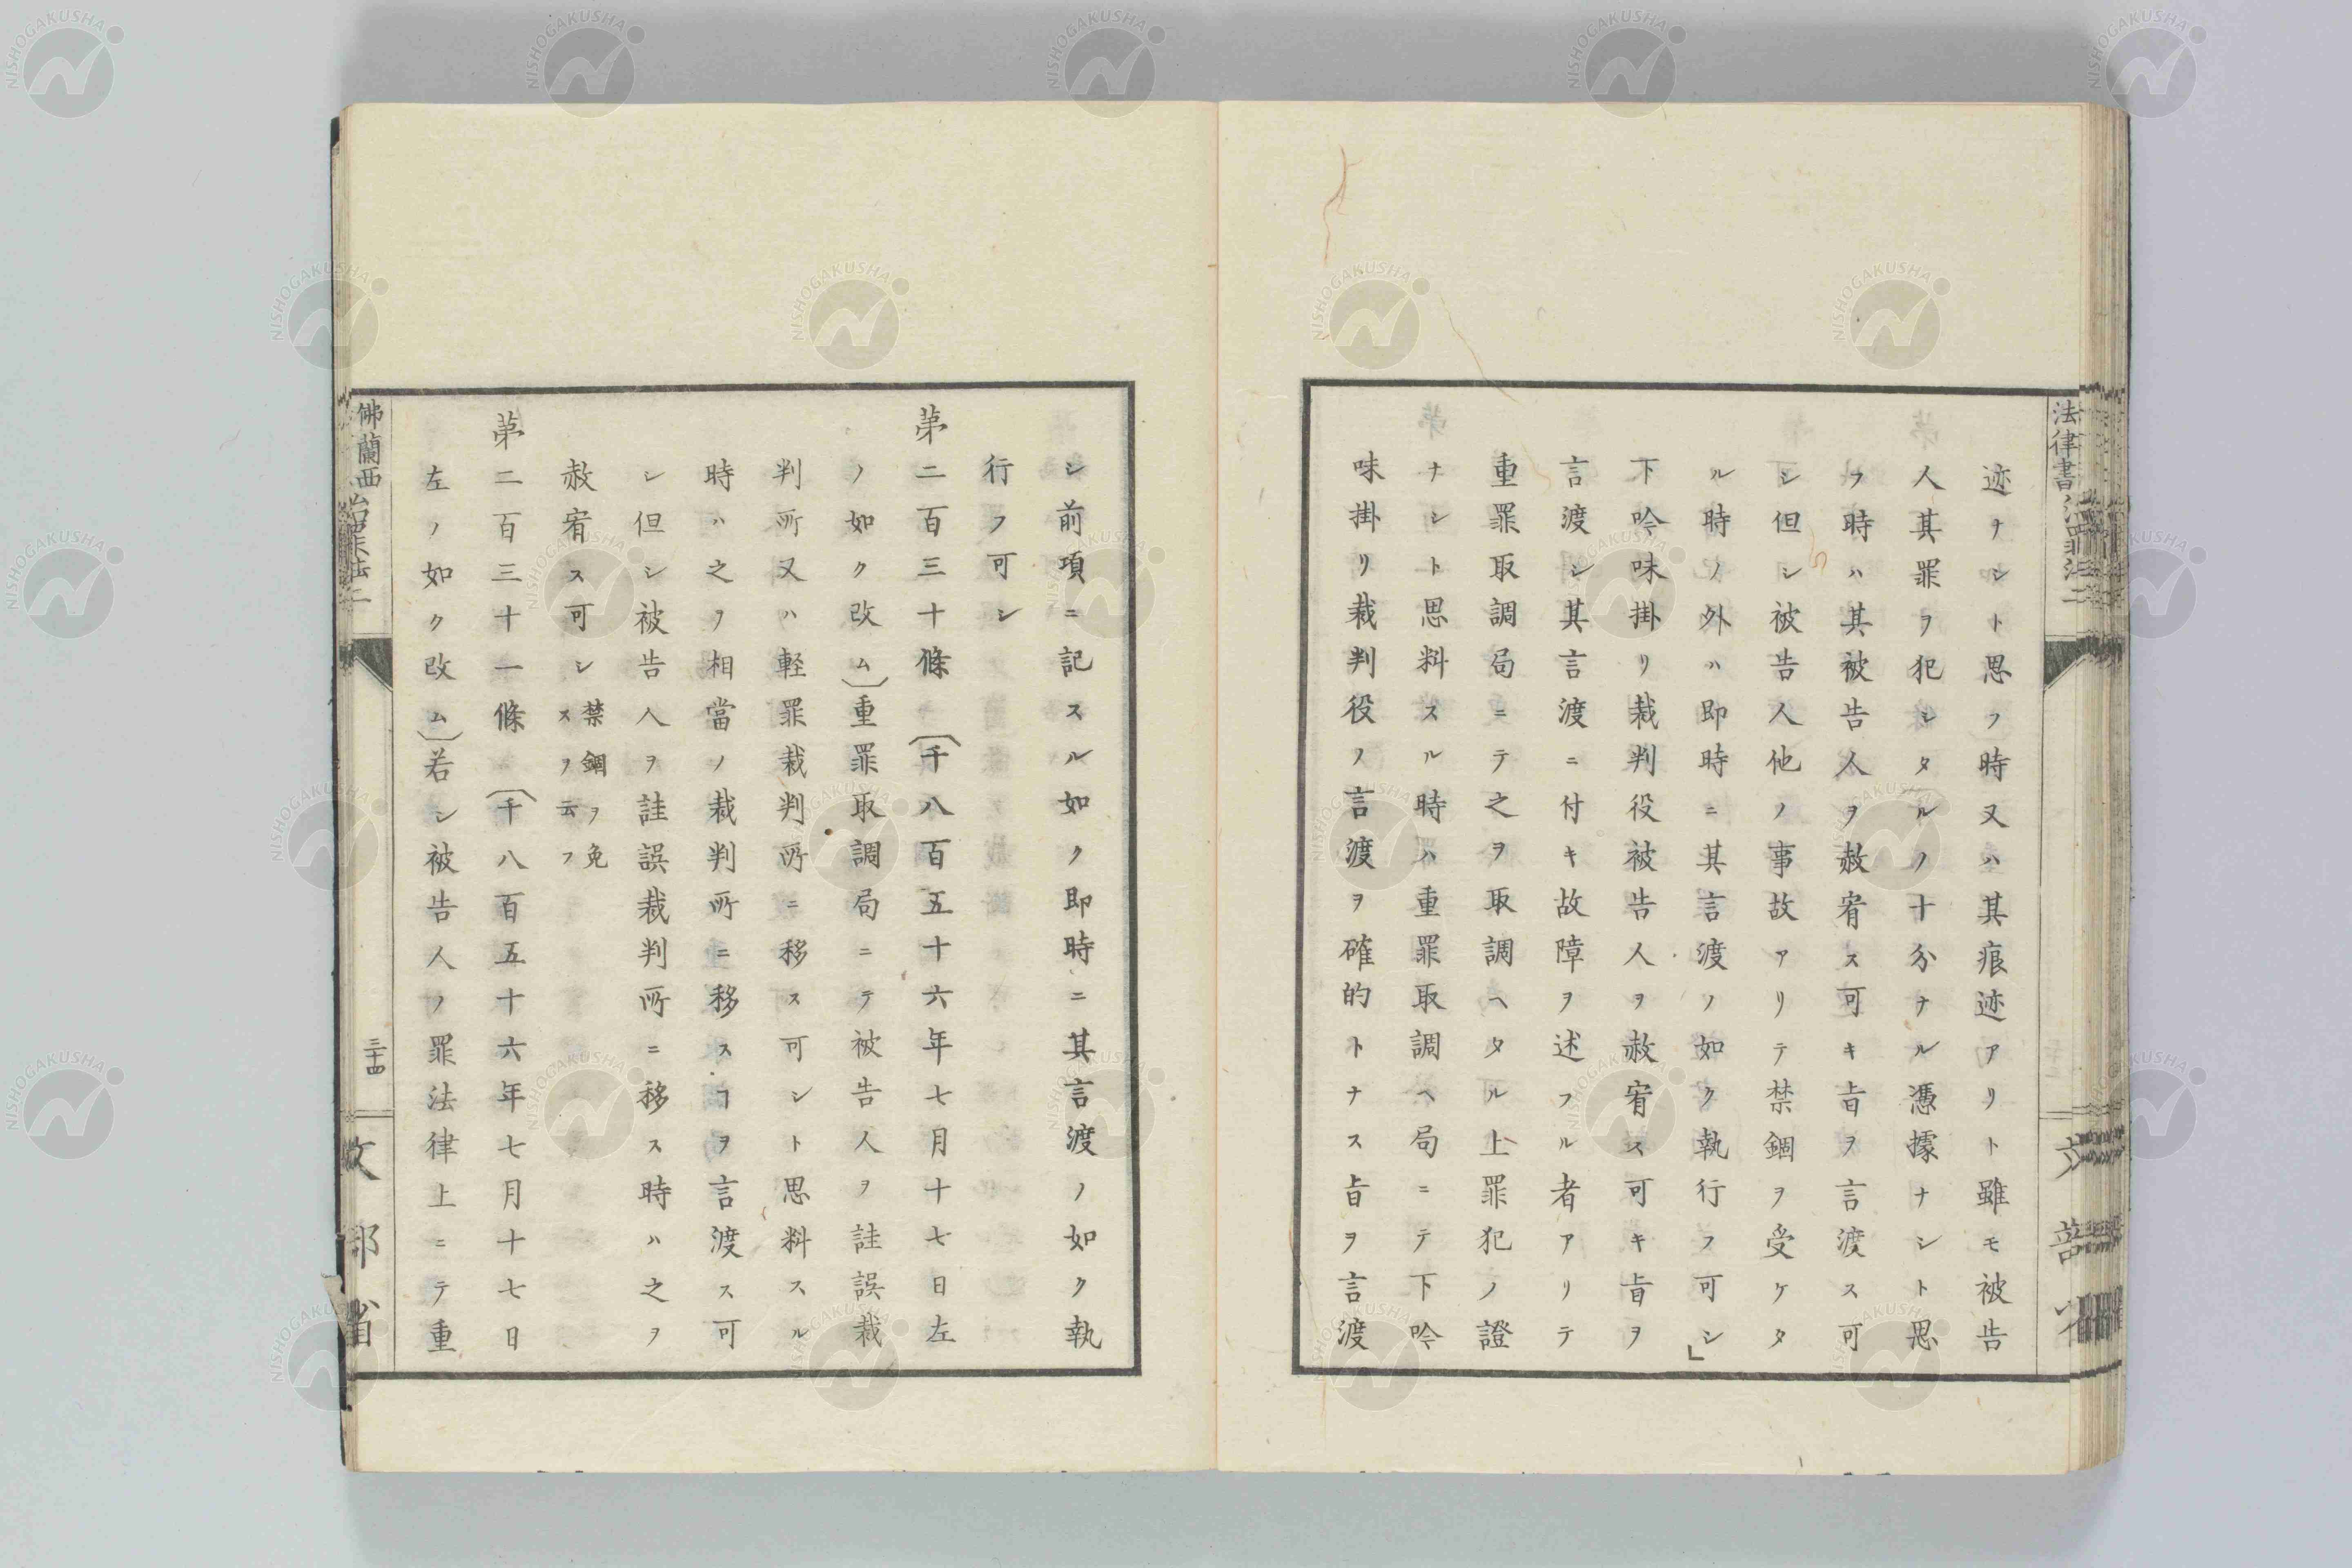 迹ナシト思フ時又ハ其痕迹アリト雖モ被告
人其罪ヲ犯シタルノ十分ナル憑據ナシト思
フ時ハ其被告人ヲ赦宥ス可キ旨ヲ言渡ス可
シ但シ被告人他ノ事故アリテ禁錮ヲ受ケタ
ル時ノ外ハ即時ニ其言渡ノ如ク執行フ可シ」
下吟味掛リ裁判役被告人ヲ赦宥ス可キ旨ヲ
言渡シ其言渡ニ付キ故障ヲ述フル者アリテ
重罪取調局ニテ之ヲ取調ヘタル上罪犯ノ證
ナシト思料スル時ハ重罪取調ヘ局ニテ下吟
味掛リ裁判役ノ言渡ヲ確的トナス旨ヲ言渡
シ前項ニ記スル如ク即時ニ其言渡ノ如ク執
行フ可シ
苐二百三十條〔千八百五十六年七月十七日左
ノ如ク改ム〕重罪取調局ニテ被告人ヲ詿誤裁
判所又ハ軽罪裁判所ニ移ス可シト思料スル
時ハ之ヲ相當ノ裁判所ニ移スヿヲ言渡ス可
シ但シ被告人ヲ詿誤裁判所ニ移ス時ハ之ヲ
赦宥ス可シ禁錮ヲ免スヲ云フ
苐二百三十一條〔千八百五十六年七月十七日
左ノ如ク改ム〕若シ被告人ノ罪法律上ニテ重
佛蘭西治罪法二
三十四
文部省
法律書治罪法二